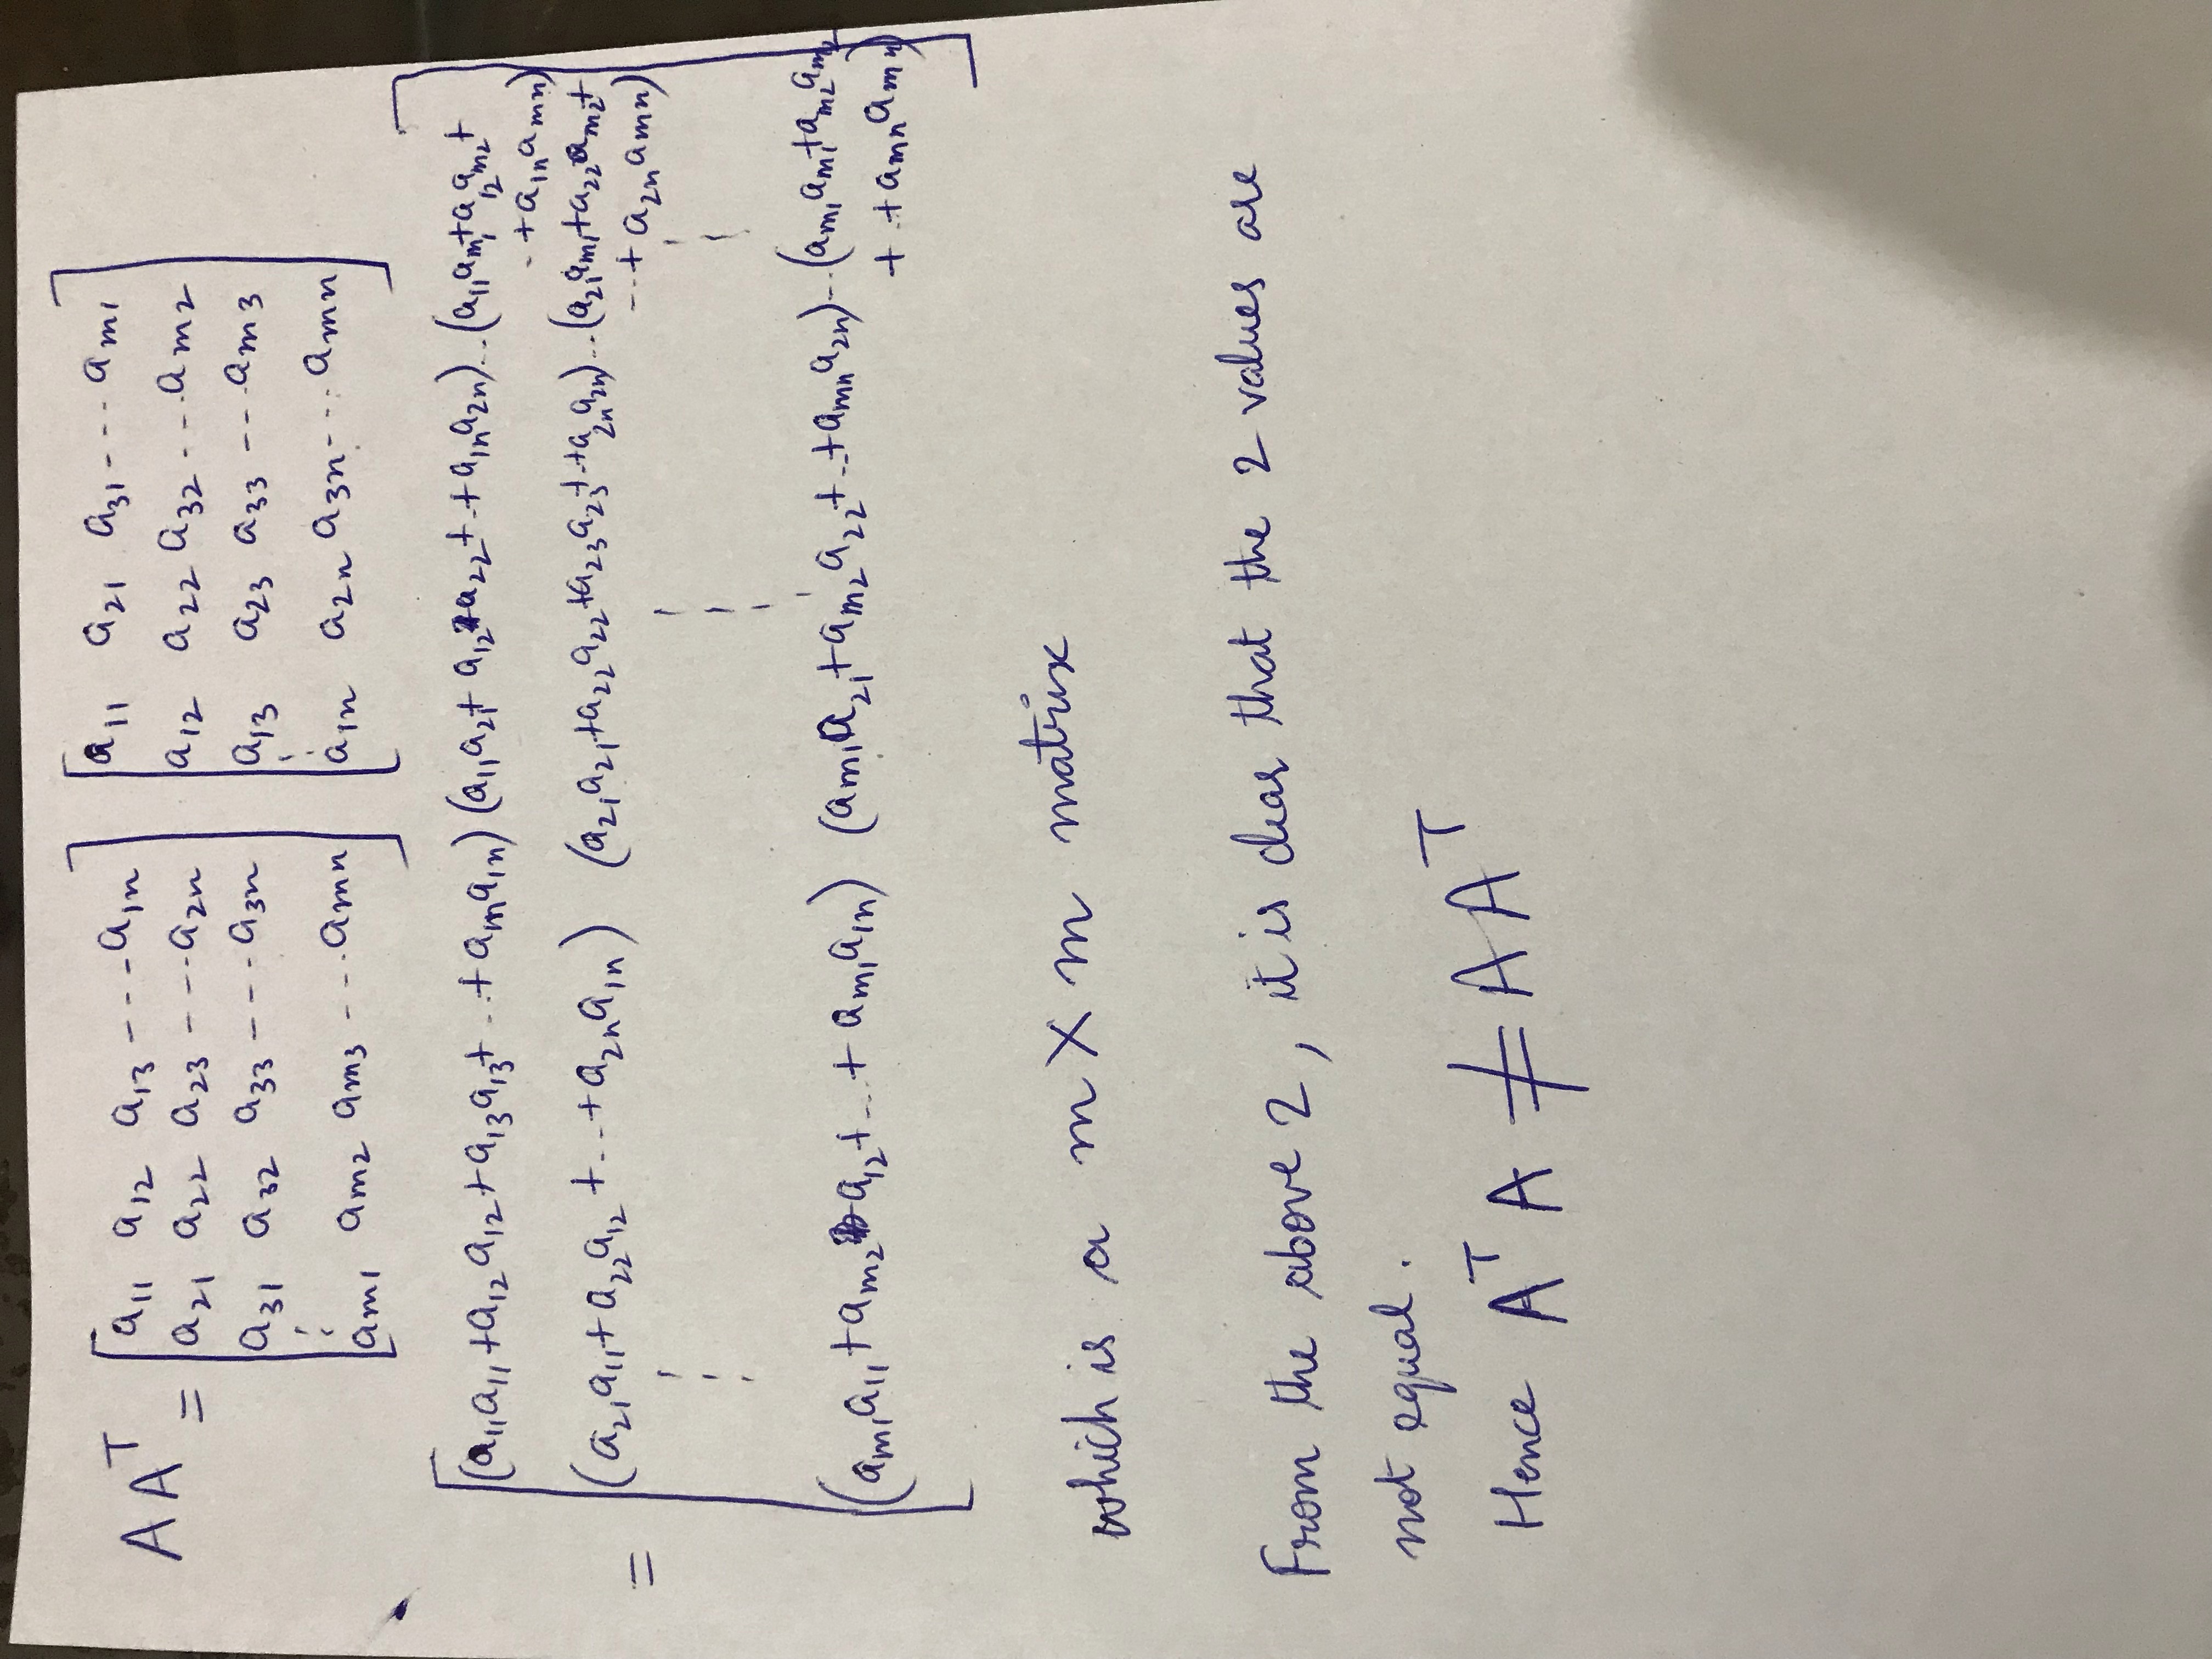 A Aᵀ = [ a₁₁ a₁₂ a₁₃ - - - a₁ₙ ] [ a₁₁ a₂₁ a₃₁ - - - aₘ₁ ]
a₂₁ a₂₂ a₂₃ - - - a₂ₙ a₁₂ a₂₂ a₃₂ - - - aₘ₂
a₃₁ a₃₂ a₃₃ - - - a₃ₙ a₁₃ a₂₃ a₃₃ - - - aₘ₃
⋮ ⋮
aₘ₁ aₘ₂ aₘ₃ - - - aₘₙ a₁ₙ a₂ₙ a₃ₙ - - - aₘₙ
= [ (a₁₁a₁₁ + a₁₂a₁₂ + a₁₃a₁₃ + .. + a₁ₙa₁ₙ) (a₁₁a₂₁ + a₁₂a₂₂ + .. + a₁ₙa₂ₙ) .. (a₁₁aₘ₁ + a₁₂aₘ₂ +
.. + a₁ₙaₘₙ)
(a₂₁a₁₁ + a₂₂a₁₂ + .. + a₂ₙa₁ₙ) (a₂₁a₂₁ + a₂₂a₂₂ + a₂₃a₂₃ + .. + a₂ₙa₂ₙ) .. (a₂₁aₘ₁ + a₂₂aₘ₂ +
.. + a₂ₙaₘₙ)
⋮ ⋮ ⋮
(aₘ₁a₁₁ + aₘ₂a₁₂ + .. + aₘ₁a₁ₙ) (aₘ₁a₂₁ + aₘ₂a₂₂ + .. + aₘₙa₂ₙ) .. (aₘ₁aₘ₁ + aₘ₂aₘ₂
+ .. + aₘₙaₘₙ) ]
which is a m X m matrix
From the above 2, it is clear that the 2 values are
not equal.
Hence Aᵀ A ≠ A Aᵀ